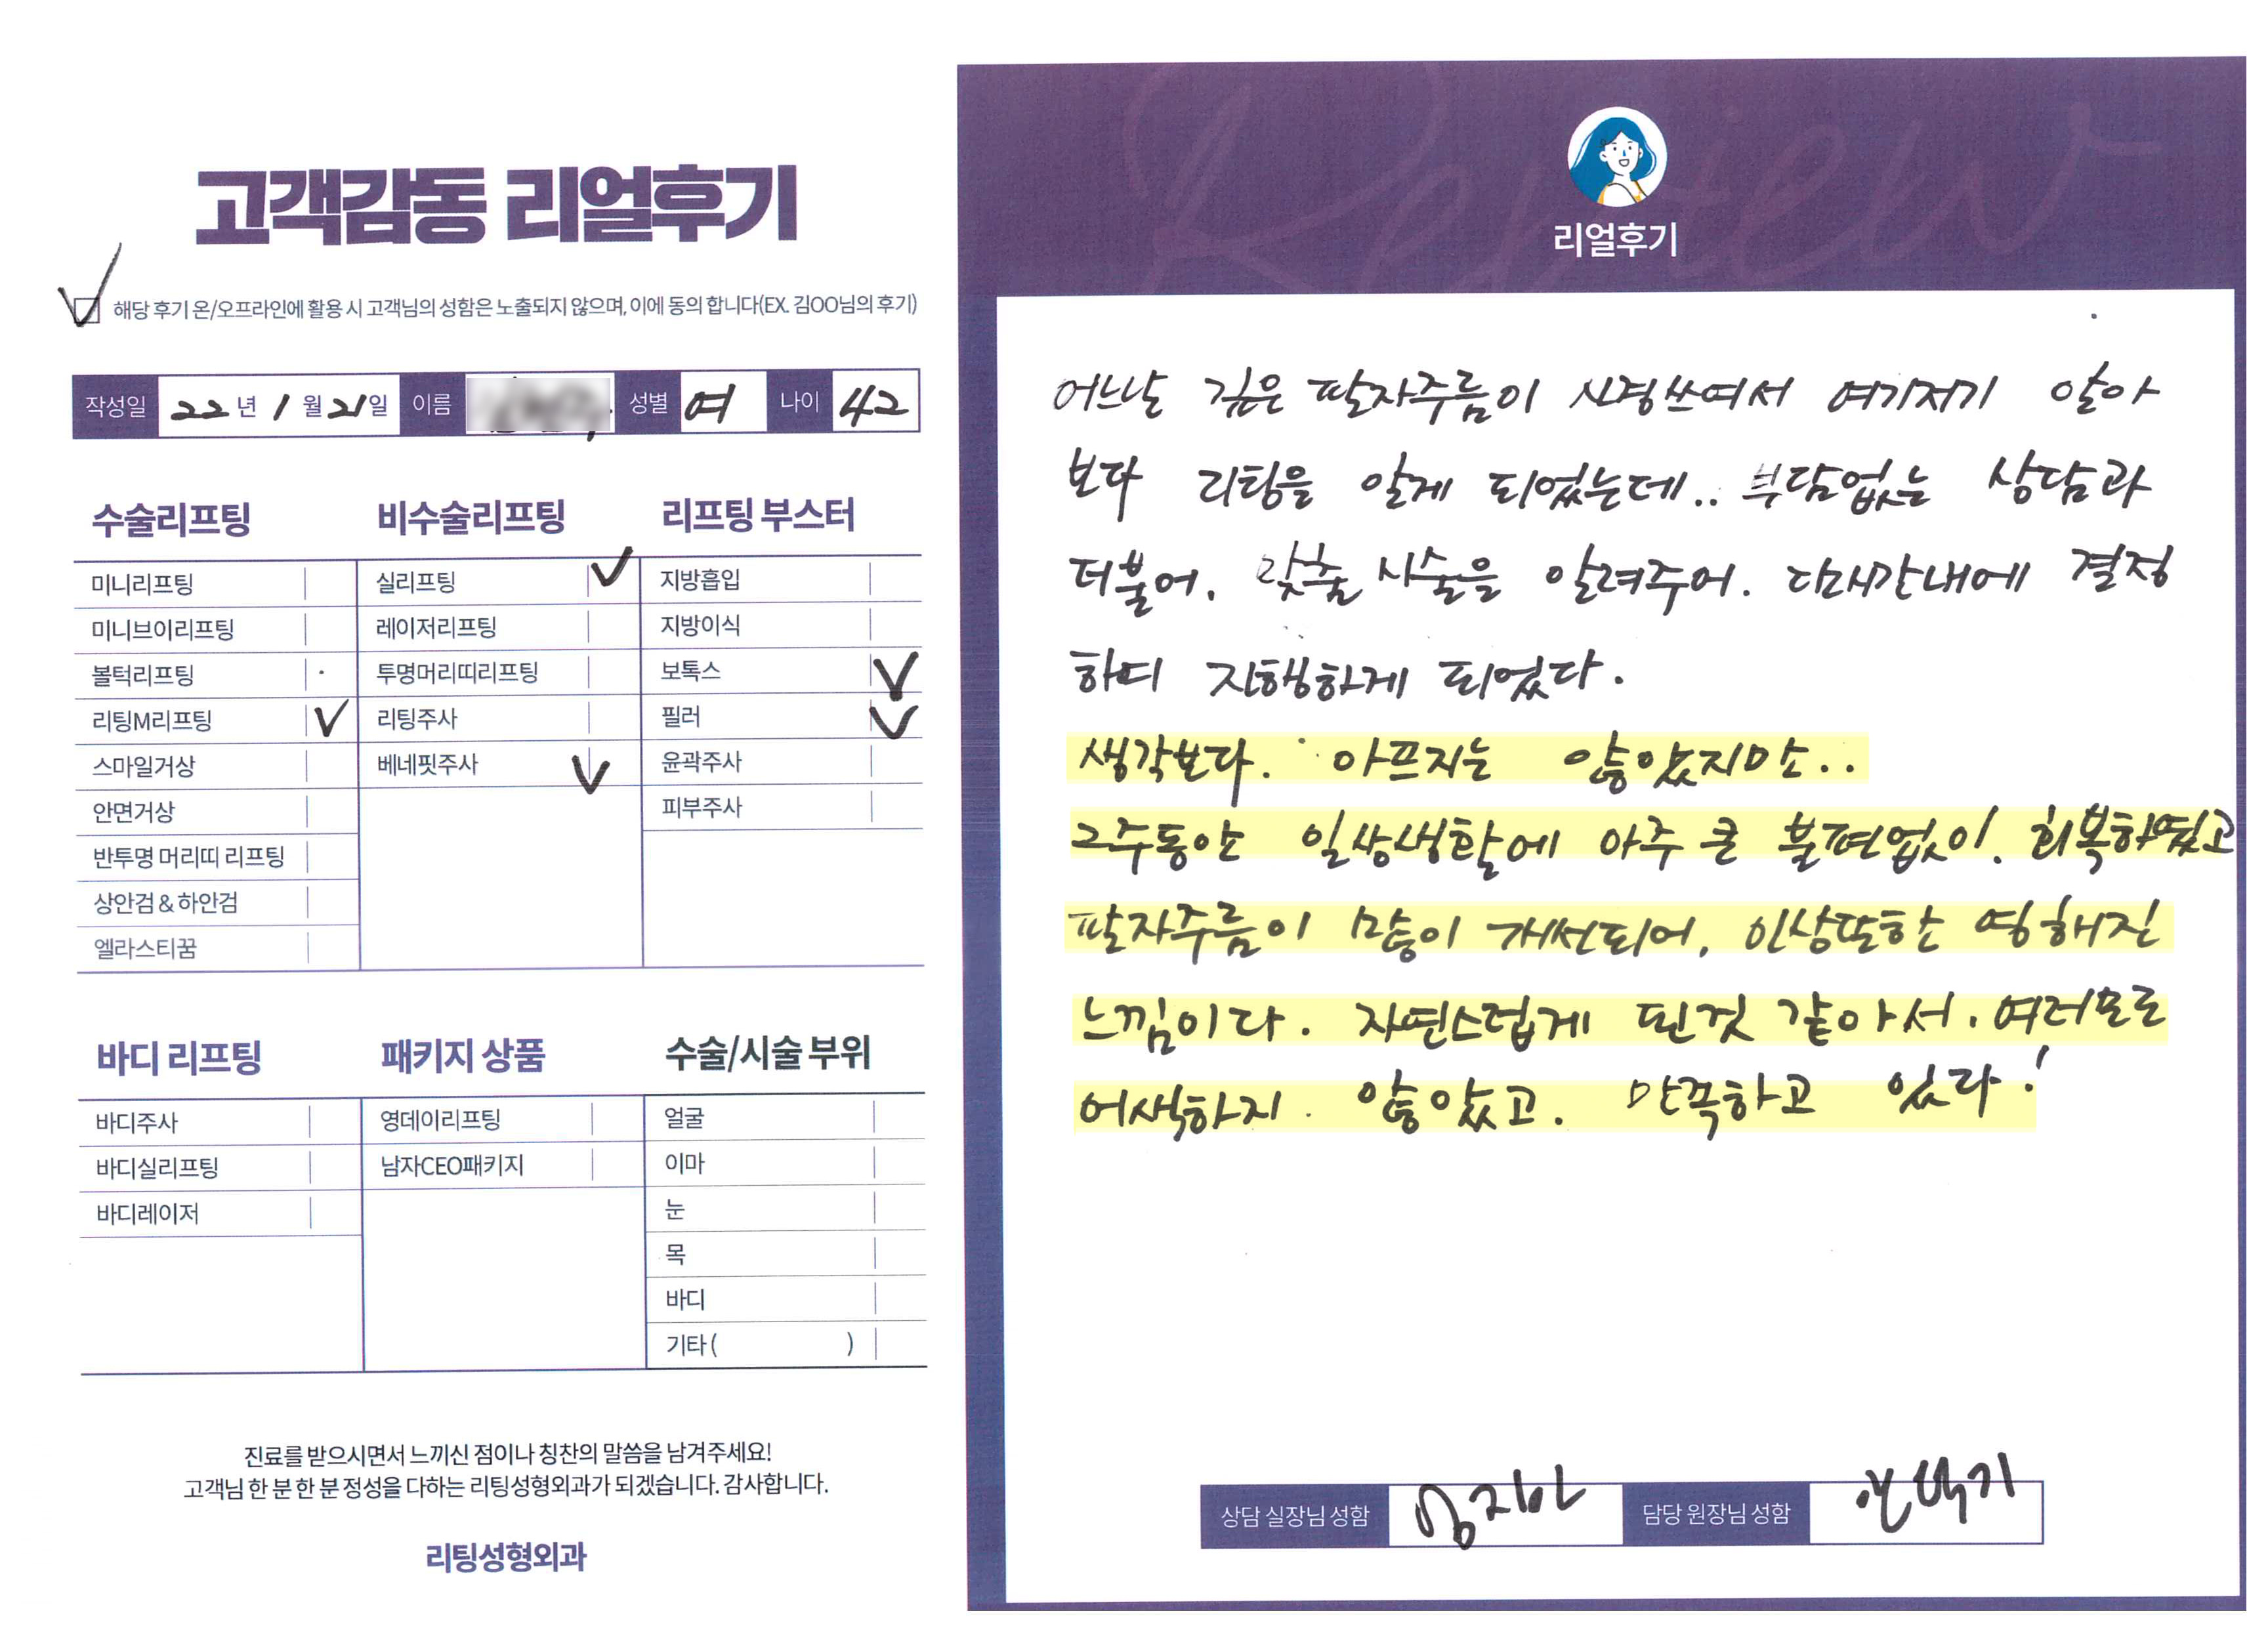 고객감동 리얼후기
해당 후기 온/오프라인에 활용 시 고객님의 성함은 노출되지 않으며, 이에 동의 합니다(EX. 김OO님의 후기)
작성일 22년 1월 21일 이름 성별 여 나이 42
수술리프팅
미니리프팅
미니브이리프팅
볼턱리프팅
리팅M리프팅
스마일거상
안면거상
반투명 머리띠 리프팅
상안검 & 하안검
엘라스티꿈
비수술리프팅
실리프팅
레이저리프팅
투명머리띠리프팅
리팅주사
베네핏주사
리프팅 부스터
지방흡입
지방이식
보톡스
필러
윤곽주사
피부주사
바디 리프팅
바디주사
바디실리프팅
바디레이저
패키지 상품
영데이리프팅
남자CEO패키지
수술/시술 부위
얼굴
이마
눈
목
바디
기타 ( )
진료를 받으시면서 느끼신 점이나 칭찬의 말씀을 남겨주세요!
고객님 한 분 한 분 정성을 다하는 리팅성형외과가 되겠습니다. 감사합니다.
리팅성형외과
Review
리얼후기
어느날 깊은 팔자주름이 신경쓰여서 여기저기 알아
보다 리팅을 알게 되었는데.. 부담없는 상담과
더불어. 맞춤 시술을 알려주어. 단시간내에 결정
하더 진행하게 되었다.
생각보다. 아프지는 않았지만..
2주동안 일상생활에 아주 큰 불편없이. 회복하였고
팔자주름이 많이 개선되어, 인상또한 영해진
느낌이다. 자연스럽게 된것 같아서. 여러모로
어색하지. 않았고. 만족하고 있다!
상담 실장님 성함 담당 원장님 성함